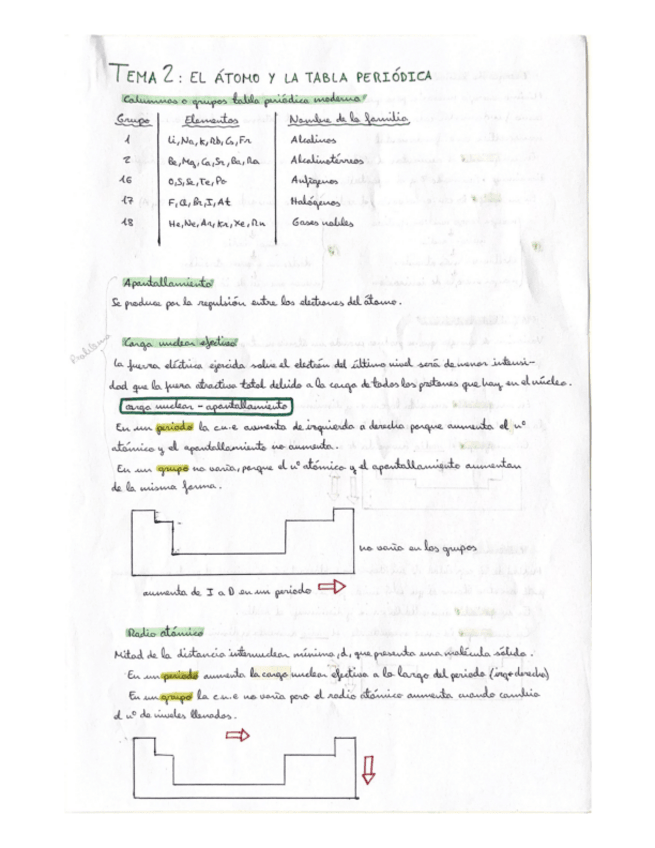 TEMA 2: EL ÁTOMO Y LA TABLA PERIÓDICA
Columnas o grupos tabla periódica moderna
Grupo Elementos Nombre de la familia
1 Li, Na, K, Rb, Cs, Fr Alcalinos
2 Be, Mg, Ca, Sr, Ba, Ra Alcalinotérreos
16 O, S, Se, Te, Po Anfígenos
17 F, Cl, Br, I, At Halógenos
18 He, Ne, Ar, Kr, Xe, Rn Gases nobles
Apantallamiento
Se produce por la repulsión entre los electrones del átomo.
Carga nuclear efectiva
La fuerza eléctrica ejercida sobre el electrón del último nivel será de menor intensi-
dad que la fuerza atractiva total debido a la carga de todos los protones que hay en el núcleo.
carga nuclear - apantallamiento
En un periodo la c.n.e aumenta de izquierda a derecha porque aumenta el nº
atómico y el apantallamiento no aumenta.
En un grupo no varía, porque el nº atómico y el apantallamiento aumentan
de la misma forma.
no varía en los grupos
aumenta de I a D en un periodo
Radio atómico
Mitad de la distancia internuclear mínima, d, que presenta una molécula sólida.
En un periodo aumenta la carga nuclear efectiva a lo largo del periodo (izq→derecha)
En un grupo la c.n.e no varía pero el radio atómico aumenta cuando cambia
el nº de niveles llenados.